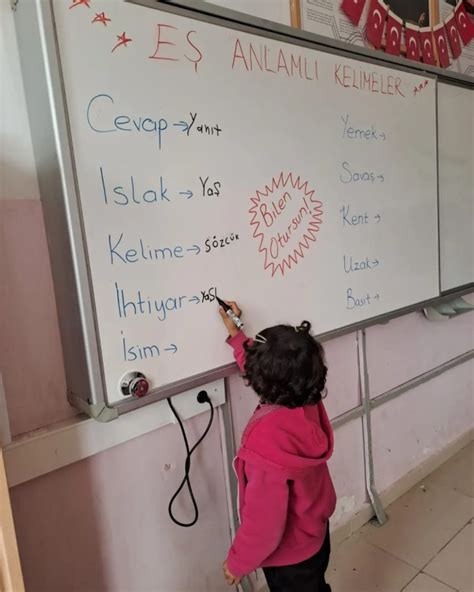 EŞ ANLAMLI KELİMELER
Cevap → Yanıt
Islak → Yaş
Kelime → Sözcük
İhtiyar → Yaşl
İsim →
Bilen
Otursun!
Yemek →
Savaş →
Kent →
Uzak →
Basit →